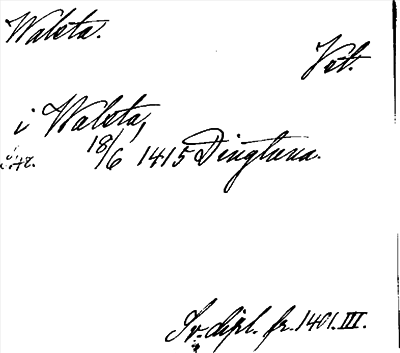 Walsta.
Vstl.
i Walsta,
18/6 1415 Dingtuna.
Sv. dipl. fr. 1401. III.